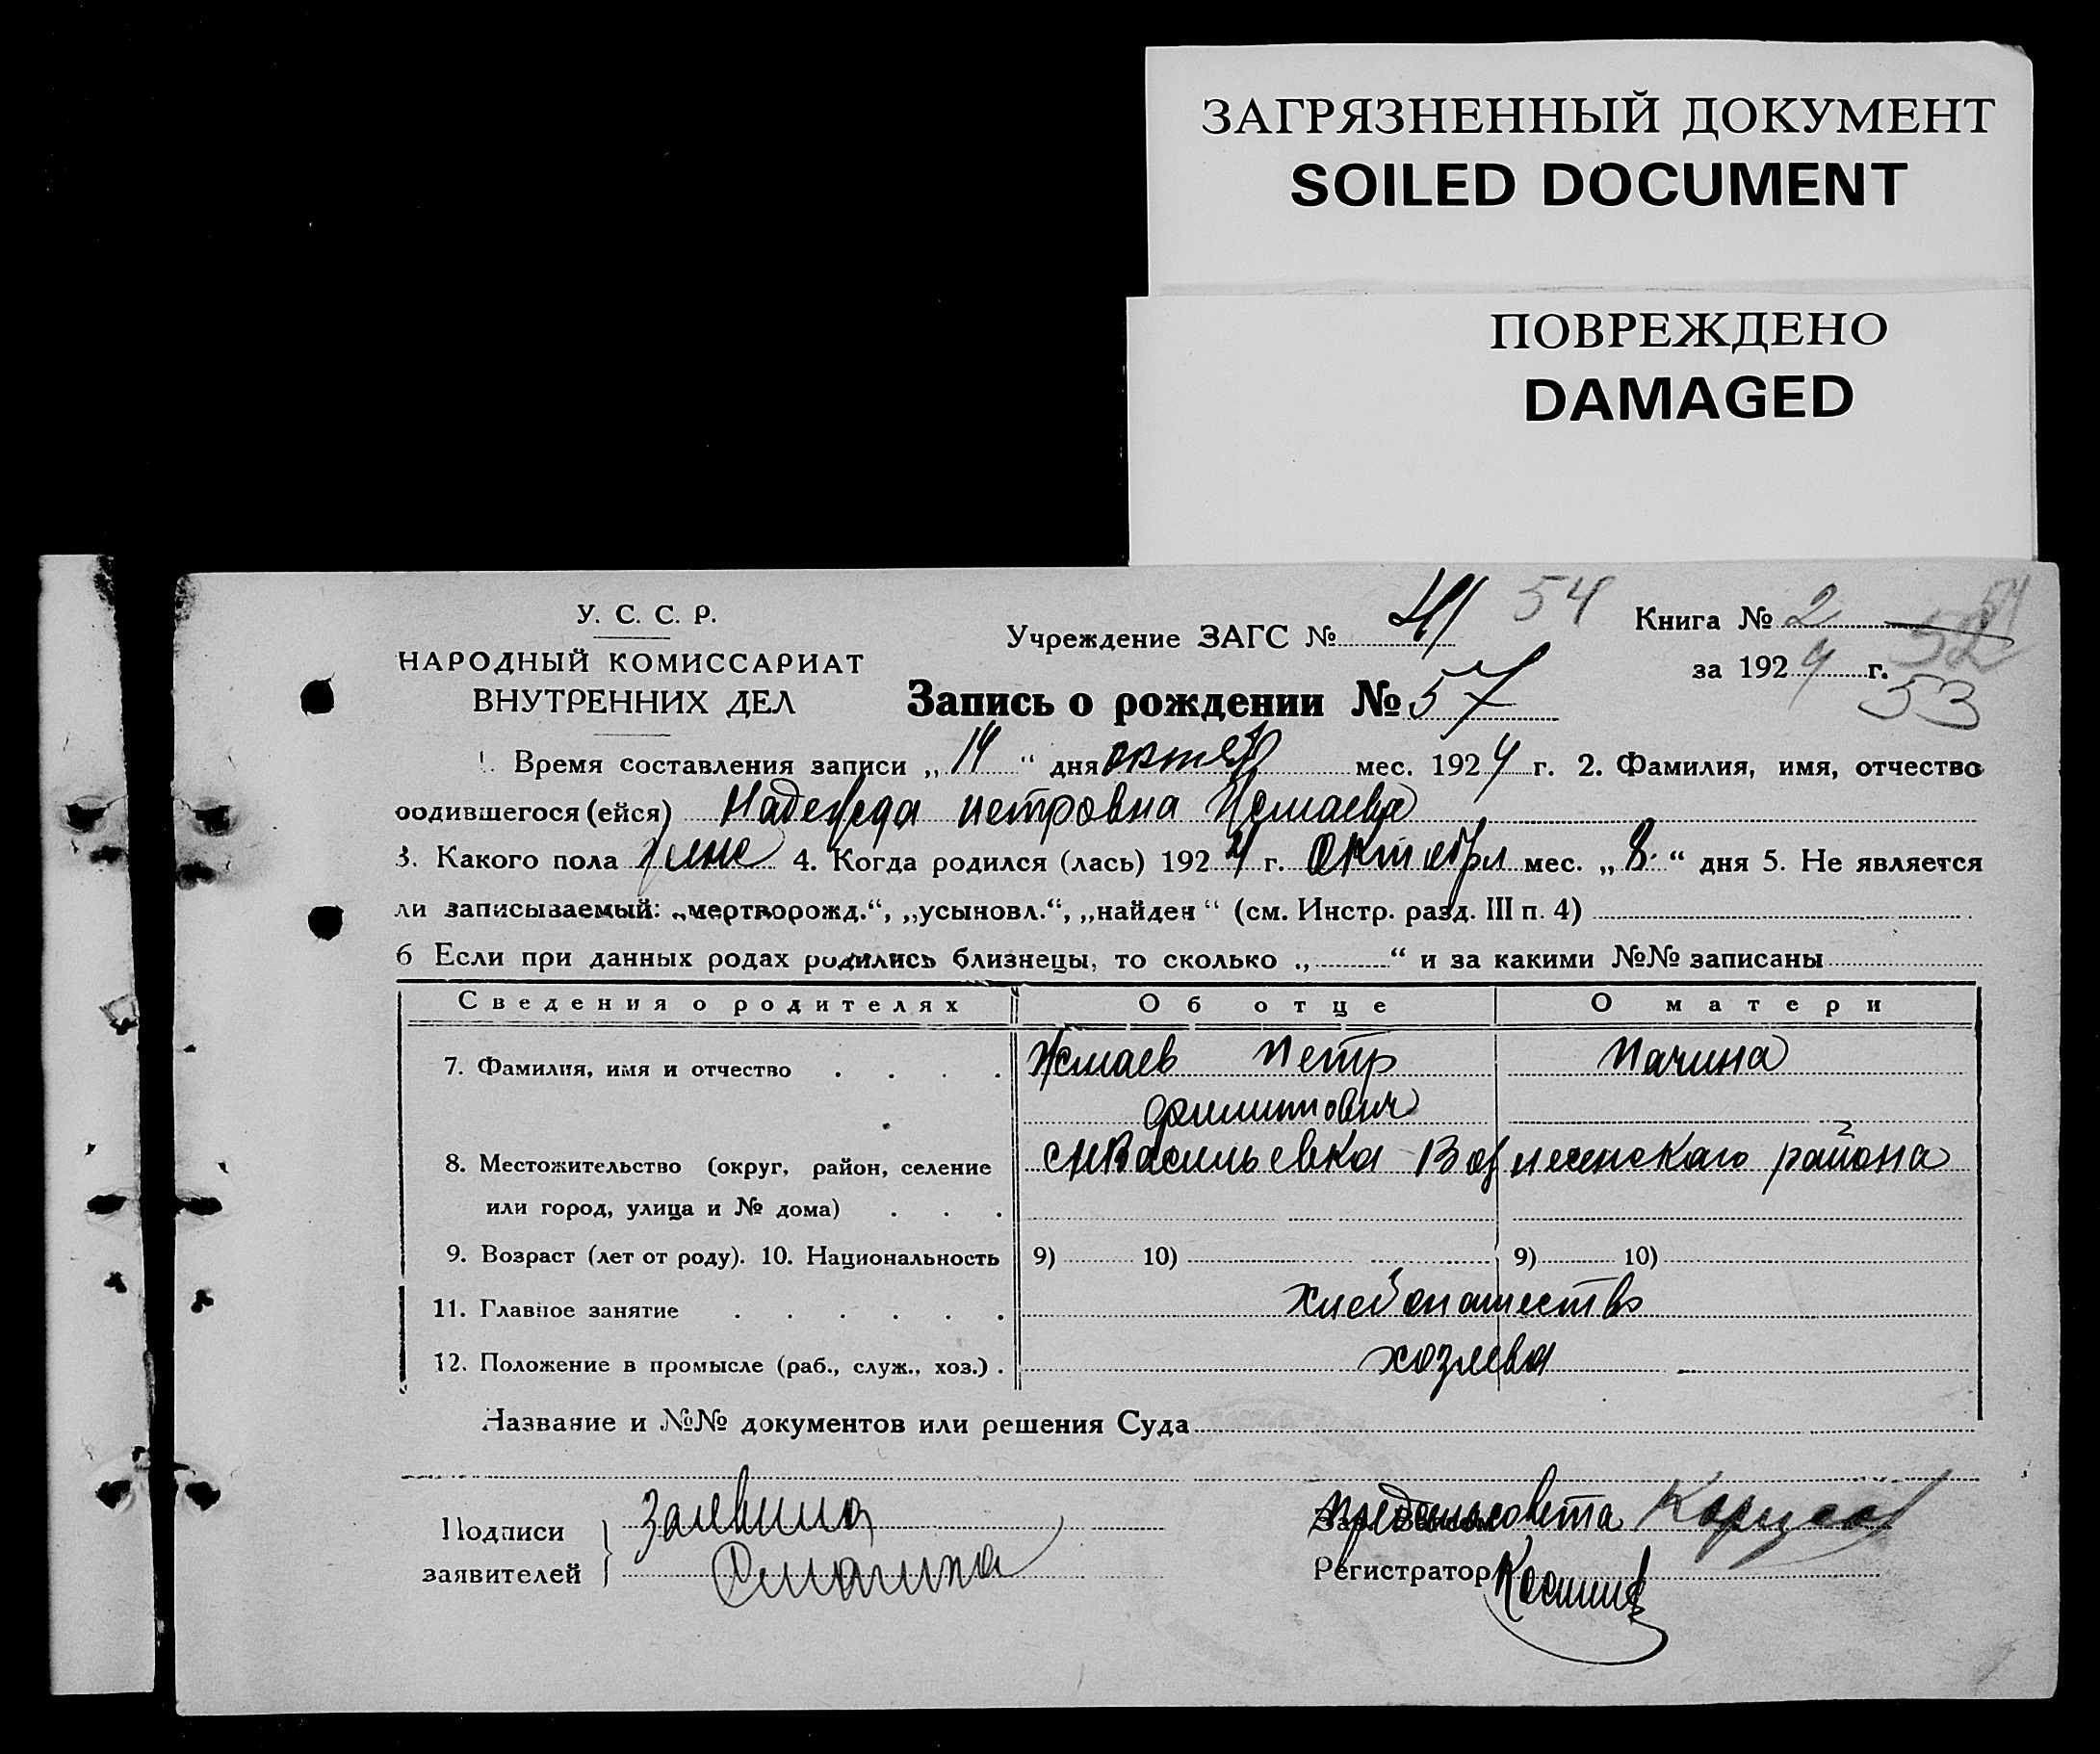 ЗАГРЯЗНЕННЫЙ ДОКУМЕНТ
SOILED DOCUMENT
ПОВРЕЖДЕНО
DAMAGED
У. С. С. Р.
НАРОДНЫЙ КОМИССАРИАТ
ВНУТРЕННИХ ДЕЛ
Учреждение ЗАГС №
54
Книга № 2
за 1924 г.
52
53
Запись о рождении № 57
1. Время составления записи „14“ дня октяб мес. 1924 г. 2. Фамилия, имя, отчество
родившегося (ейся) Надежда Петровна
3. Какого пола жене 4. Когда родился (лась) 1924 г. Октября мес. „8“ дня 5. Не является
ли записываемый: „мертворожд.“, „усыновл.“, „найден“ (см. Инстр. разд. III п. 4)
6 Если при данных родах родились близнецы, то сколько „ “ и за какими №№ записаны
Сведения о родителях Об отце О матери
7. Фамилия, имя и отчество Петр
8. Местожительство (округ, район, селение Васильевка Вознесенскаго района
или город, улица и № дома)
9. Возраст (лет от роду). 10. Национальность 9) 10) 9) 10)
11. Главное занятие хлебопашество
12. Положение в промысле (раб., служ., хоз.) хозяева
Название и №№ документов или решения Суда
Подписи
заявителей
Предсельсовета
Регистратор